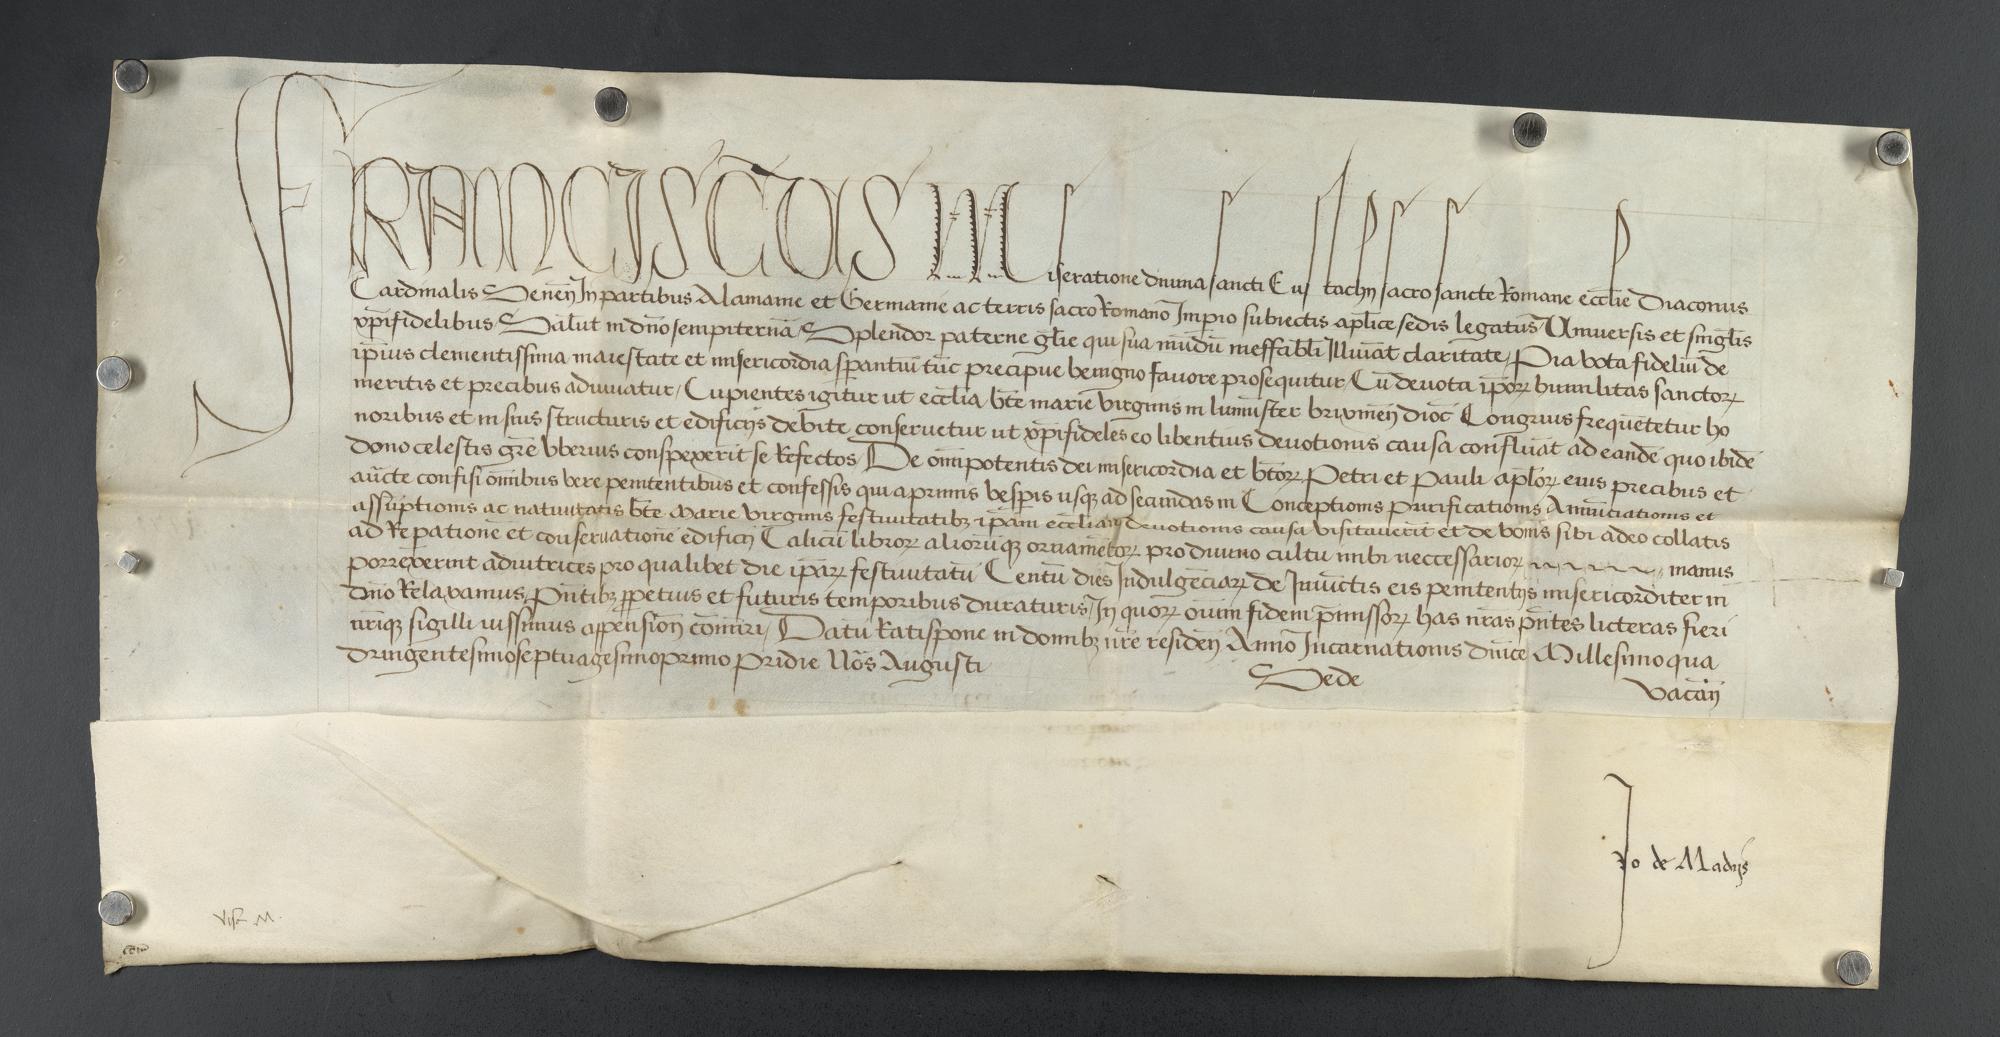 FRANCISCUS Miseratione divina sancti Eustachij sacrosancte Romane eccl̄ie Diaconus
Cardinalis Seneñ In partibus Alamanie et Germanie ac terris sacro Romano Imperio subiectis ap̄lice sedis legatus Universis et singl̄is
xp̄ifidelibus Salut̄ in dn̄o sempiternā Splendor paterne gl̄ie qui sua mūdū ineffabil̄i Illūiat claritate, Pia vota fideliū de
ip̄ius clementissima maiestate et misericordia sperantiū tūc precipue benigno favore prosequitur, Cū devota ip̄oꝝ humilitas sanctoꝝ
meritis et precibus adiuvatur, Cupientes igitur ut eccl̄ia bt̄e marie virginis in lumiūster brixineñ dioc̄ Congruis frequētetur ho
noribus et in suis structuris et edificijs debite conservetur ut xp̄ifideles eo libentius devotionis causa confluāt ad eandē quo ibidē
dono celestis gr̄e uberius conspexerit se Refectos, De om̄ipotentis dei misericordia et bt̄oꝝ Petri et Pauli ap̄loꝝ eius precibus et
auct̄e confisi om̄ibus vere penitentibus et confessis qui a primis vesperis usqꝫ ad secundas in Conceptionis Purificationis Annūtiationis et
assūptionis ac nativitatis bt̄e Marie virginis festivitatibꝫ ip̄am eccl̄iam devotionis causa visitaverīt et de bonis sibi a deo collatis
ad Repationē et conservationē edificij Calicū libroꝝ alioꝝūqꝫ ornamētoꝝ pro divino cultu inibi neccessarioꝝ manus
porrexerint adiutrices pro qualibet die ip̄aꝝ festivitatū Centū dies Indulgēciaꝝ de Iniūctis eis penitentijs misericorditer in
dn̄o Relaxamus, Pn̄tibꝫ ꝑpetuis et futuris temporibus duraturis, In quoꝝ oīum fidem p̄missoꝝ has nr̄as pn̄tes licteras fieri
nr̄iqꝫ sigilli iussimus appensioñ com̄iri, Datū Ratispone in domibꝫ nr̄e resideñ Anno Incarnationis dn̄ice Millesimo qua
dringentesimoseptuagesimoprimo Pridie Noñ Augusti
Sede vacañ
Jo de Madijs
Visa M.